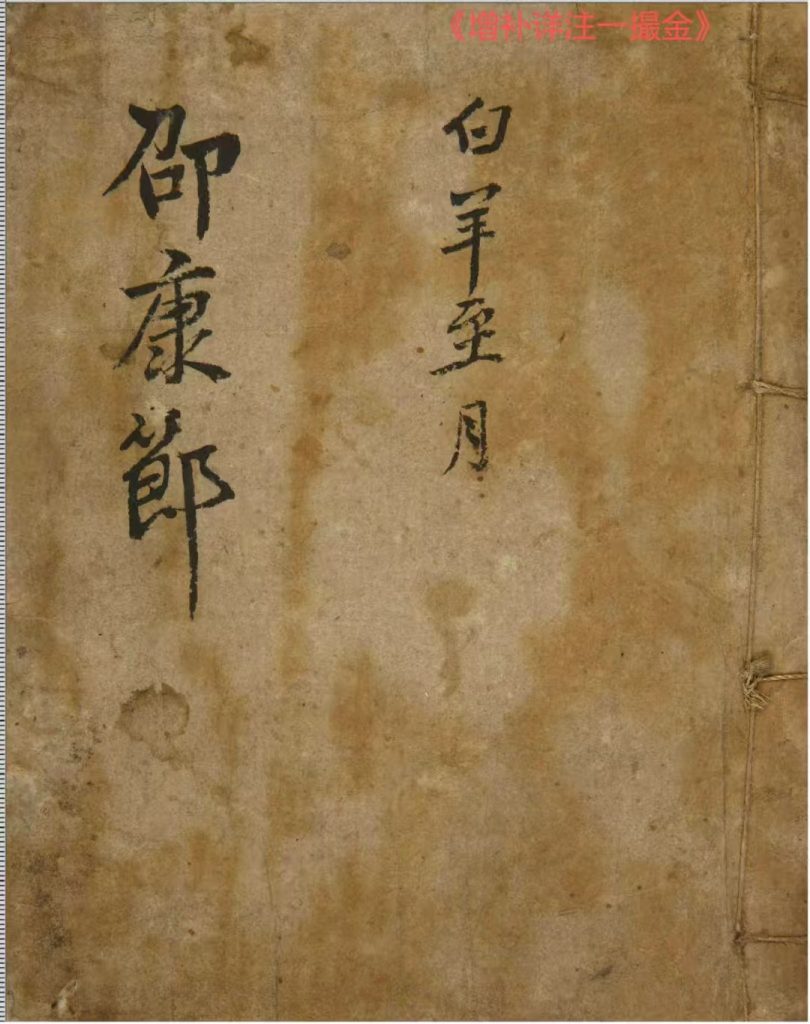 《增补详注一撮金》
白羊至月
邵康節